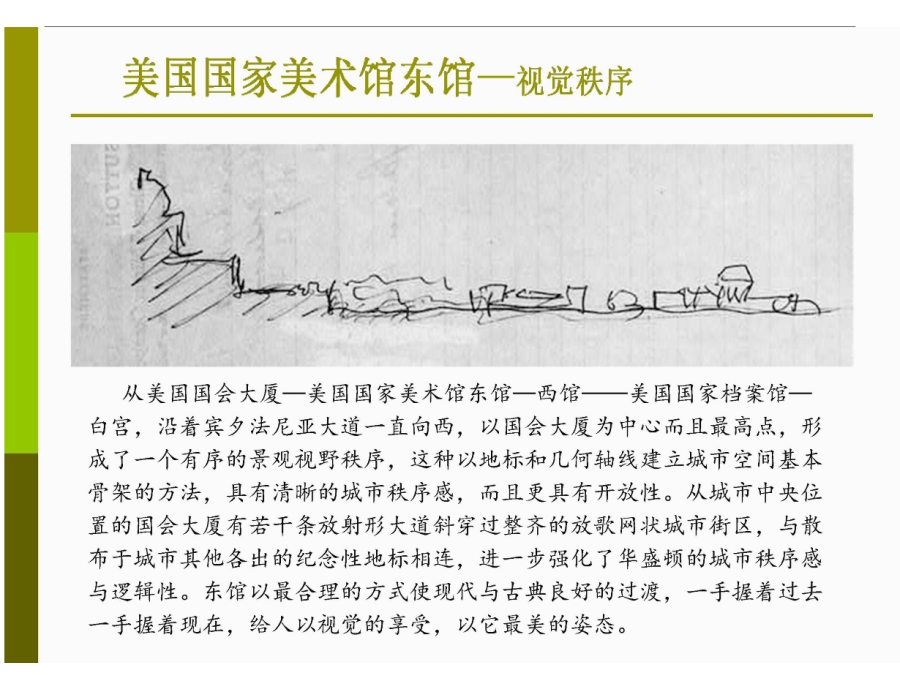 美国国家美术馆东馆—视觉秩序
SUTTON
从美国国会大厦—美国国家美术馆东馆—西馆——美国国家档案馆—
白宫，沿着宾夕法尼亚大道一直向西，以国会大厦为中心而且最高点，形
成了一个有序的景观视野秩序，这种以地标和几何轴线建立城市空间基本
骨架的方法，具有清晰的城市秩序感，而且更具有开放性。从城市中央位
置的国会大厦有若干条放射形大道斜穿过整齐的放歌网状城市街区，与散
布于城市其他各出的纪念性地标相连，进一步强化了华盛顿的城市秩序感
与逻辑性。东馆以最合理的方式使现代与古典良好的过渡，一手握着过去
一手握着现在，给人以视觉的享受，以它最美的姿态。